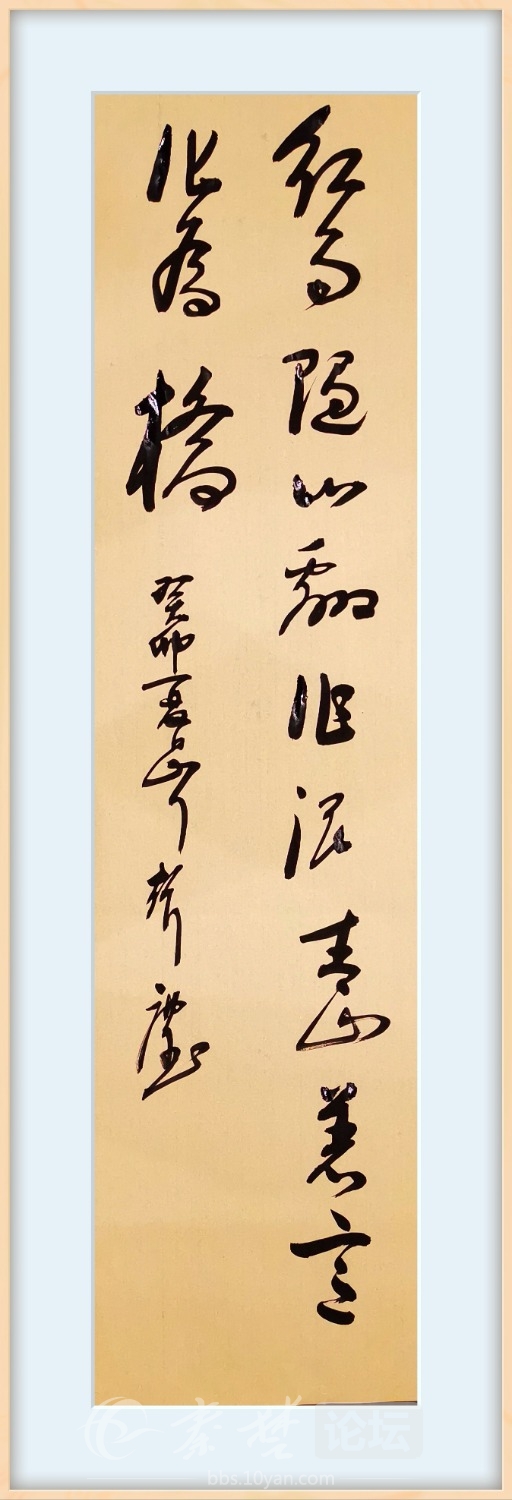 红雨随心翻作浪青山着意
化为桥
癸卯夏
秦楚论坛
bbs.10yan.com